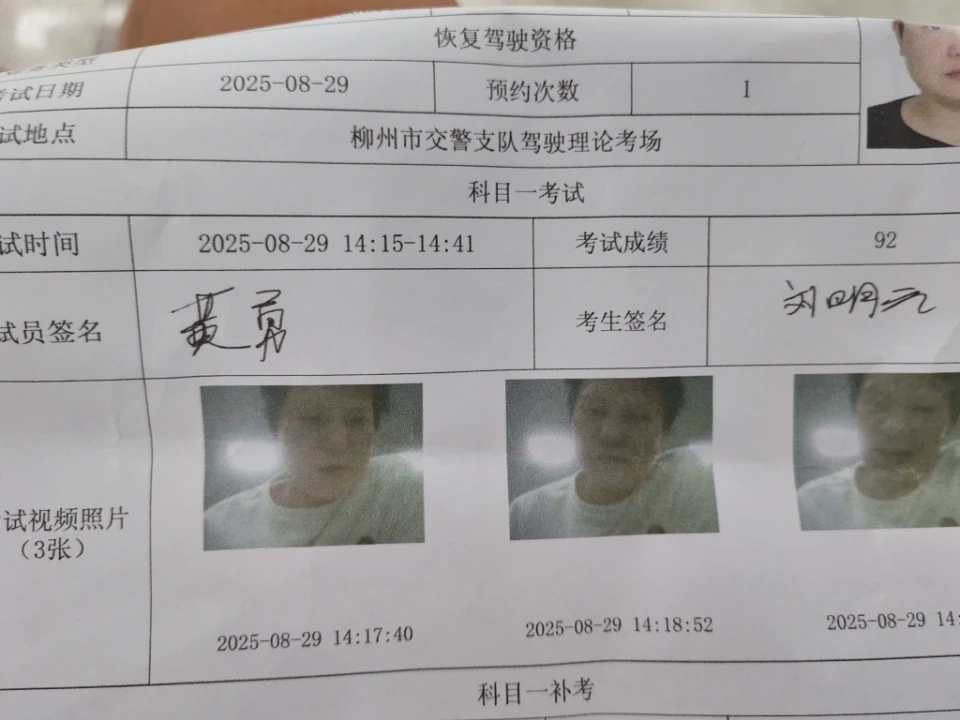 恢复驾驶资格
考试日期 2025-08-29 预约次数 1
试地点 柳州市交警支队驾驶理论考场
科目一考试
试时间 2025-08-29 14:15-14:41 考试成绩 92
试员签名 黄勇 考生签名 刘明元
试视频照片
（3张）
2025-08-29 14:17:40 2025-08-29 14:18:52 2025-08-29 14:
科目一补考